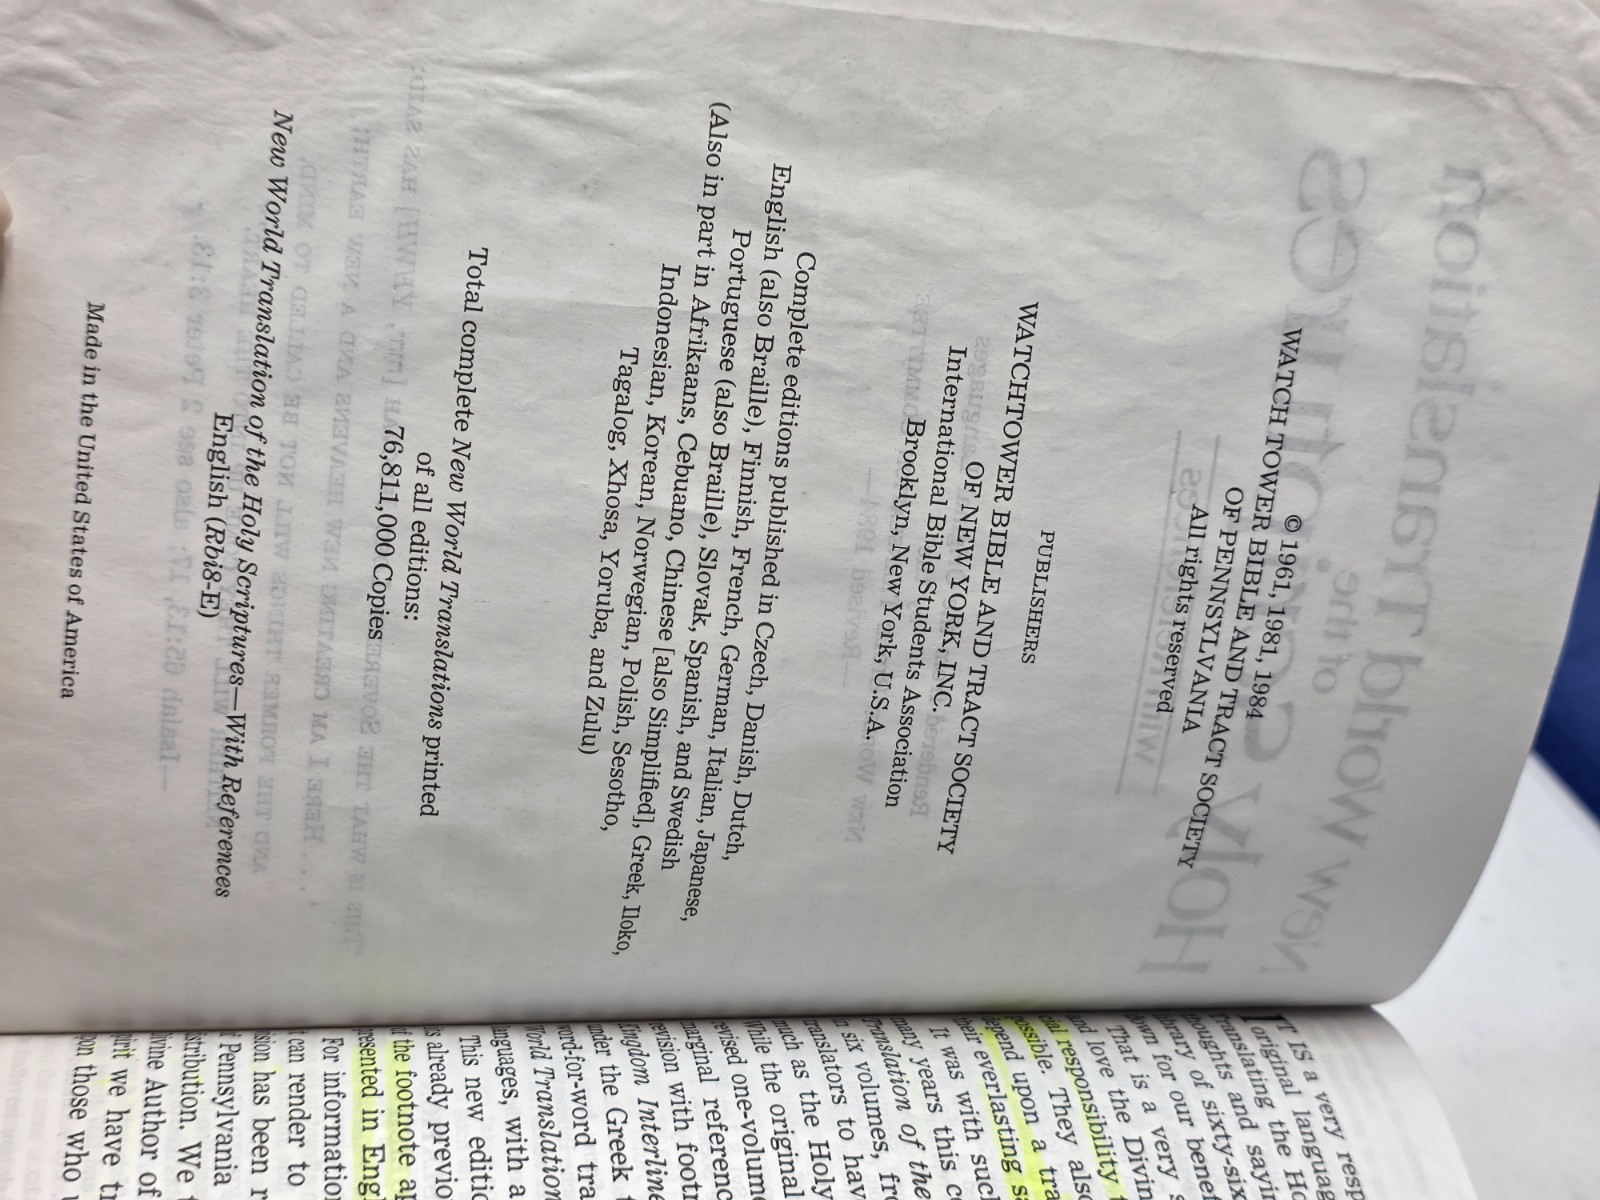 © 1961, 1981, 1984
WATCH TOWER BIBLE AND TRACT SOCIETY
OF PENNSYLVANIA
All rights reserved
PUBLISHERS
WATCHTOWER BIBLE AND TRACT SOCIETY
OF NEW YORK, INC.
International Bible Students Association
Brooklyn, New York, U.S.A.
Complete editions published in Czech, Danish, Dutch,
English (also Braille), Finnish, French, German, Italian, Japanese,
Portuguese (also Braille), Slovak, Spanish, and Swedish
(Also in part in Afrikaans, Cebuano, Chinese [also Simplified], Greek, Iloko,
Indonesian, Korean, Norwegian, Polish, Sesotho,
Tagalog, Xhosa, Yoruba, and Zulu)
Total complete New World Translations printed
of all editions:
76,811,000 Copies
New World Translation of the Holy Scriptures—With References
English (Rbi8-E)
Made in the United States of America
IT IS a very resp
original languag
translating the Ho
thoughts and sayin
library of sixty-six
down for our benef
That is a very s
and love the Divin
cial responsibility t
possible. They also
depend upon a tra
their everlasting s
It was with such
many years this co
Translation of the
in six volumes, fr
translators to hav
much as the Holy
While the original
revised one-volume
marginal referenc
revision with footn
Kingdom Interline
under the Greek t
word-for-word tra
World Translation
languages, with a
This new editio
its already previo
of the footnote ap
resented in Engl
For information
it can render to
sion has been r
of Pennsylvania
istribution. We t
Divine Author of
spirit we have tr
upon those who